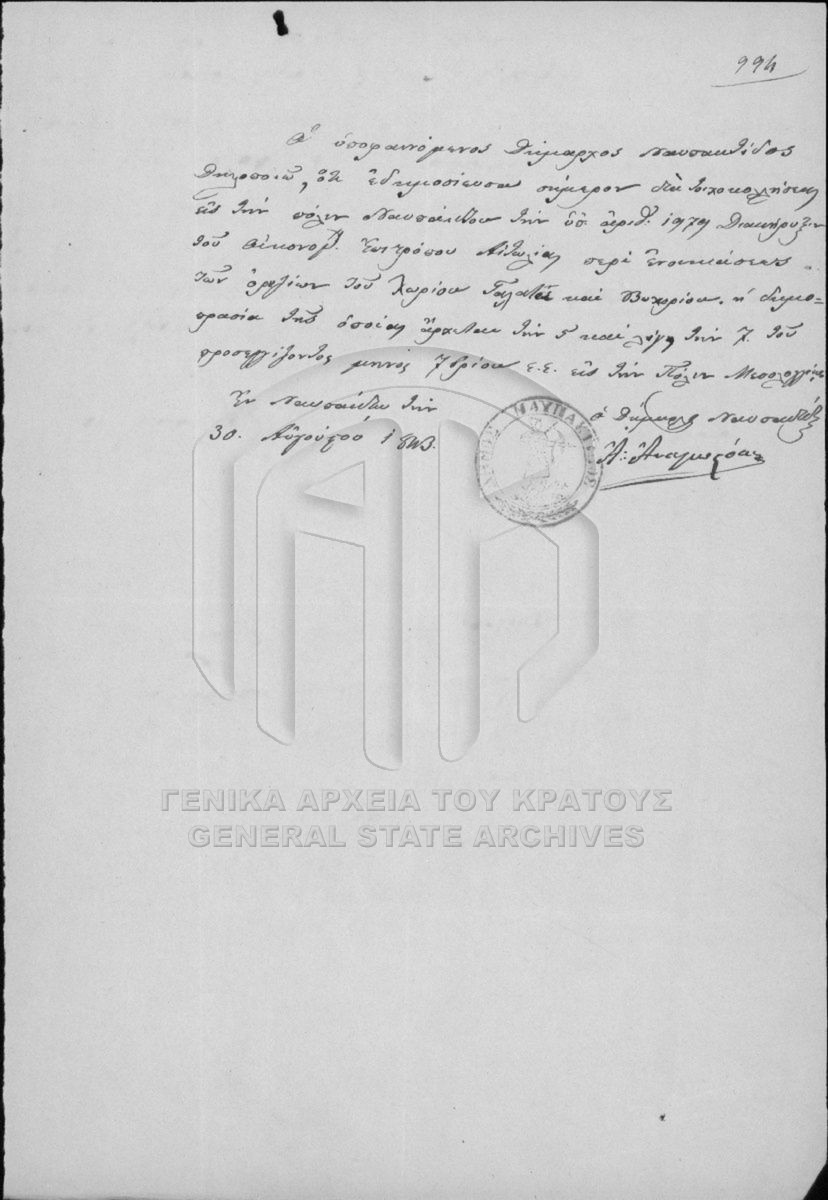 994
Ὁ ὑποφαινόμενος Δήμαρχος Ναυπακτίδος
Δηλοποιῶ, ὅτι ἐδημοσίευσα σήμερον διὰ τοιχοκολλήσεως
εἰς τὴν πόλιν Ναυπάκτου τὴν ὑπ' ἀριθ. 1979 Διακήρυξιν
τοῦ Οἰκονομ. Ἐπιτρόπου Αἰτωλίας περὶ ἐνοικιάσεως
τῶν τοῦ χωρίου Γαλατᾶ καὶ Βοχωρίου, ἡ δημο-
πρασία τῆς ὁποίας ἄρχεται τὴν 5 καὶ λήγει τὴν 7. τοῦ
προσεγγίζοντος μηνὸς 7βρίου ἐ.ἔ. εἰς τὴν Πόλιν Μεσολογγίου
Ἐν Ναυπάκτῳ τὴν
30. Αὐγούστου 1843.
ὁ Δήμαρχος Ναυπακτίδος
ΔΗΜΟΣ ΝΑΥΠΑΚΤΙΔΟΣ
ΓΕΝΙΚΑ ΑΡΧΕΙΑ ΤΟΥ ΚΡΑΤΟΥΣ
GENERAL STATE ARCHIVES